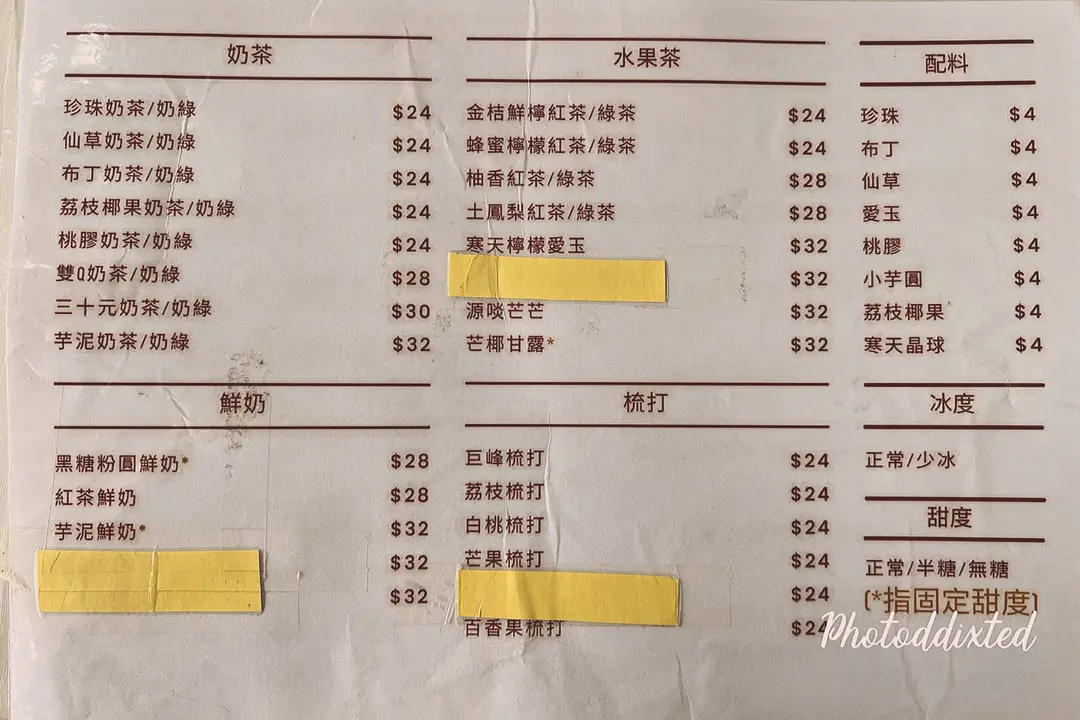 奶茶
珍珠奶茶/奶綠 $24
仙草奶茶/奶綠 $24
布丁奶茶/奶綠 $24
荔枝椰果奶茶/奶綠 $24
桃膠奶茶/奶綠 $24
雙Q奶茶/奶綠 $28
三十元奶茶/奶綠 $30
芋泥奶茶/奶綠 $32
鮮奶
黑糖粉圓鮮奶* $28
紅茶鮮奶 $28
芋泥鮮奶* $32
$32
$32
水果茶
金桔鮮檸紅茶/綠茶 $24
蜂蜜檸檬紅茶/綠茶 $24
柚香紅茶/綠茶 $28
土鳳梨紅茶/綠茶 $28
寒天檸檬愛玉 $32
$32
源啖芒芒 $32
芒椰甘露* $32
梳打
巨峰梳打 $24
荔枝梳打 $24
白桃梳打 $24
芒果梳打 $24
$24
百香果梳打 $24
配料
珍珠 $4
布丁 $4
仙草 $4
愛玉 $4
桃膠 $4
小芋圓 $4
荔枝椰果 $4
寒天晶球 $4
冰度
正常/少冰
甜度
正常/半糖/無糖
(*指固定甜度)
Photoddixted